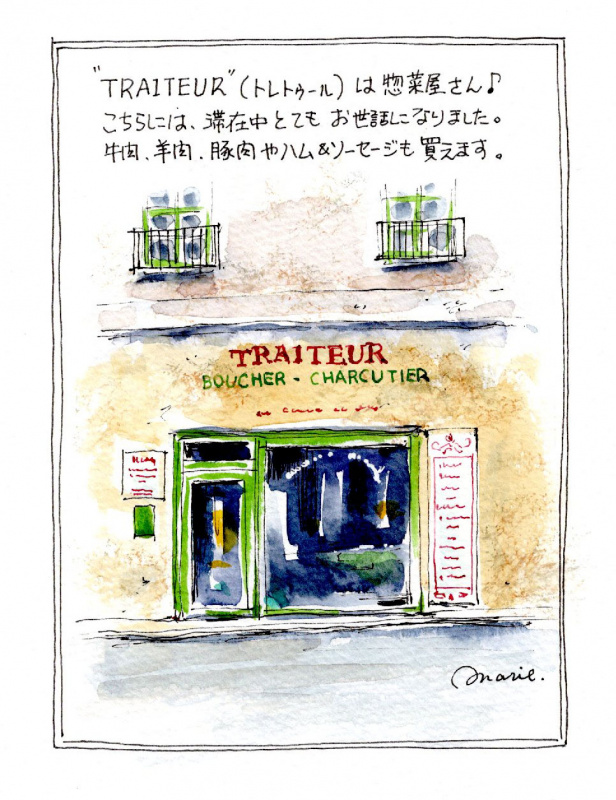 "TRAITEUR"(トレトゥール)は惣菜屋さん♪
こちらには、滞在中とてもお世話になりました。
牛肉、羊肉、豚肉やハム&ソーセージも買えます。
TRAITEUR
BOUCHER - CHARCUTIER
marie.